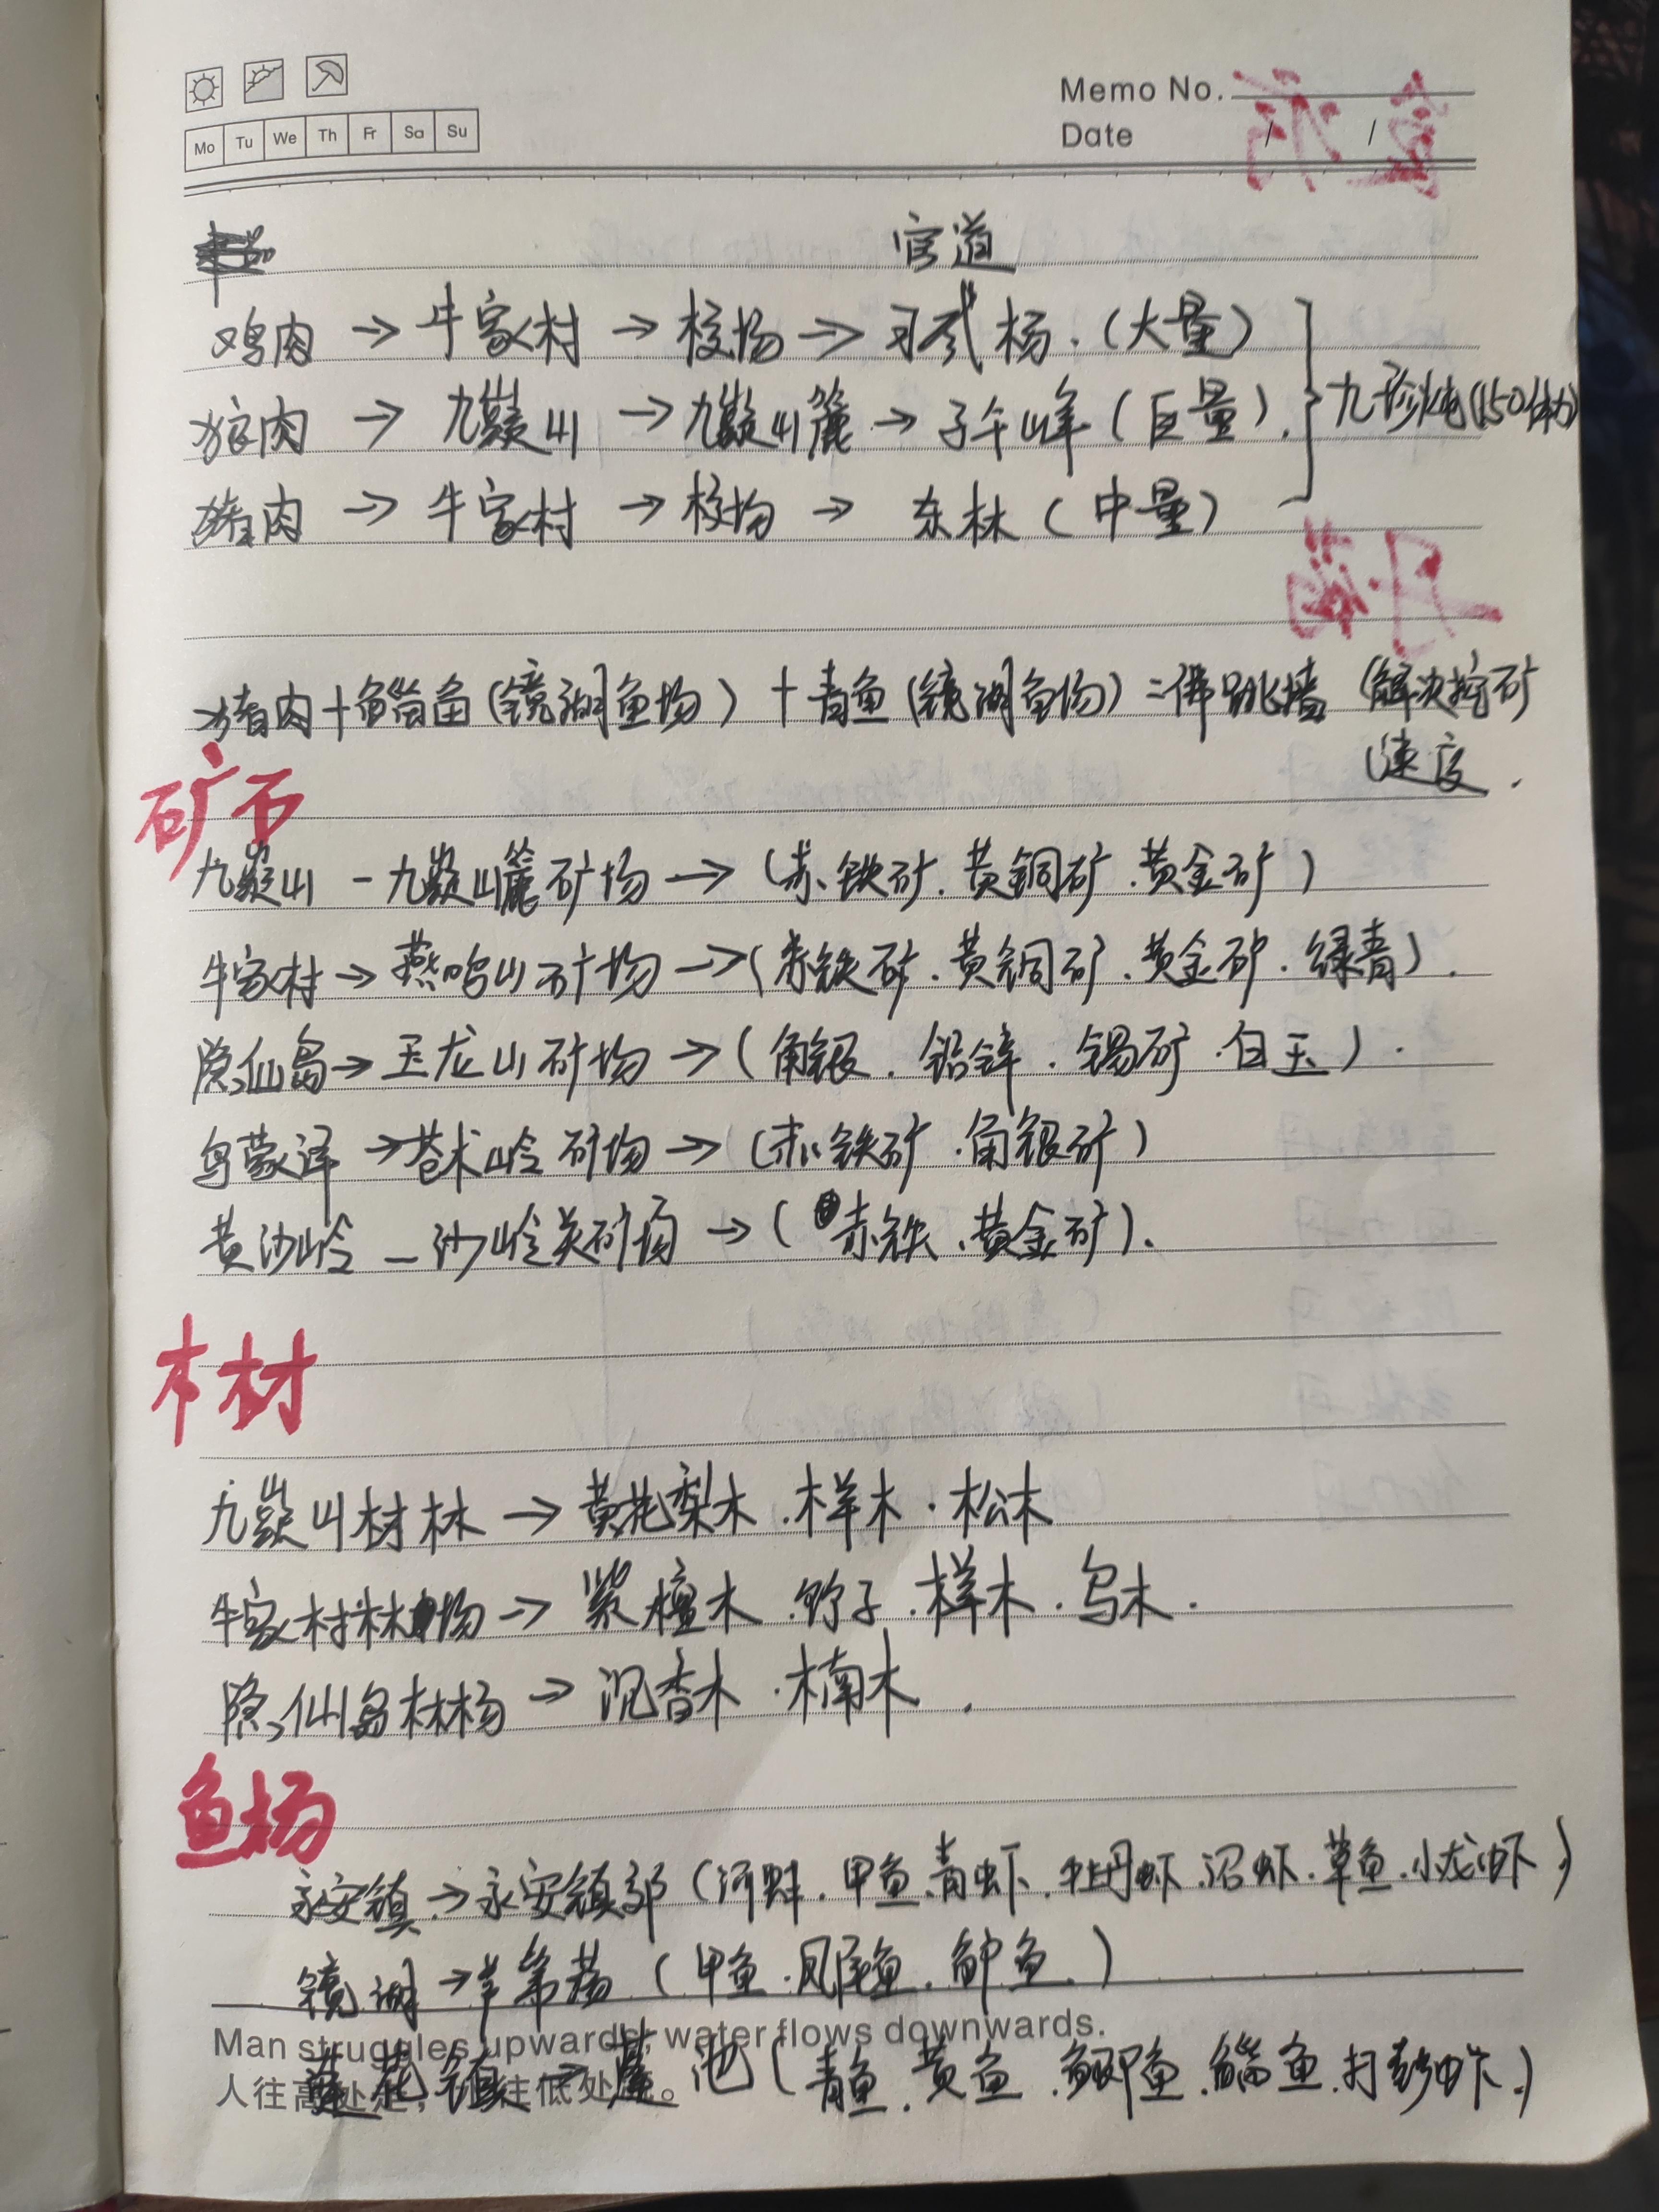 Memo No.
Date / /
Mo Tu We Th Fr Sa Su
官道
鸡肉 → 牛家村 → 校场 → 习武场.(大量)
狼肉 → 九嶷山 → 九嶷山麓 → 子午峰(巨量).
九珍炖(150体力)
猪肉 → 牛家村 → 校场 → 东林(中量)
猪肉+鲻鱼(镜湖鱼场)+青鱼(镜湖鱼场)=佛跳墙(解决挖矿
速度.
矿石
九嶷山-九嶷山麓矿场→(赤铁矿.黄铜矿.黄金矿)
牛家村→燕鸣山矿场→(赤铁矿.黄铜矿.黄金矿.绿青).
隐仙岛→玉龙山矿场→(角银.铅锌.锡矿.白玉).
乌蒙泽→苍术岭矿场→(赤铁矿.角银矿)
黄沙岭-沙岭关矿场→(赤铁.黄金矿).
木材
九嶷山材林→黄花梨木.样木.松木
牛家村林场→紫檀木.竹子.样木.乌木.
隐仙岛林场→沉香木.楠木.
鱼场
永安镇→永安镇郊(河蚌.甲鱼.青虾.牡丹虾.沼虾.草鱼.小龙虾)
镜湖→羊角荡(甲鱼.凤尾鱼.鲈鱼.)
Man struggles upwards, water flows downwards.
池(青鱼.黄鱼.鲫鱼.鲻鱼.
人往高处走,水往低处流。